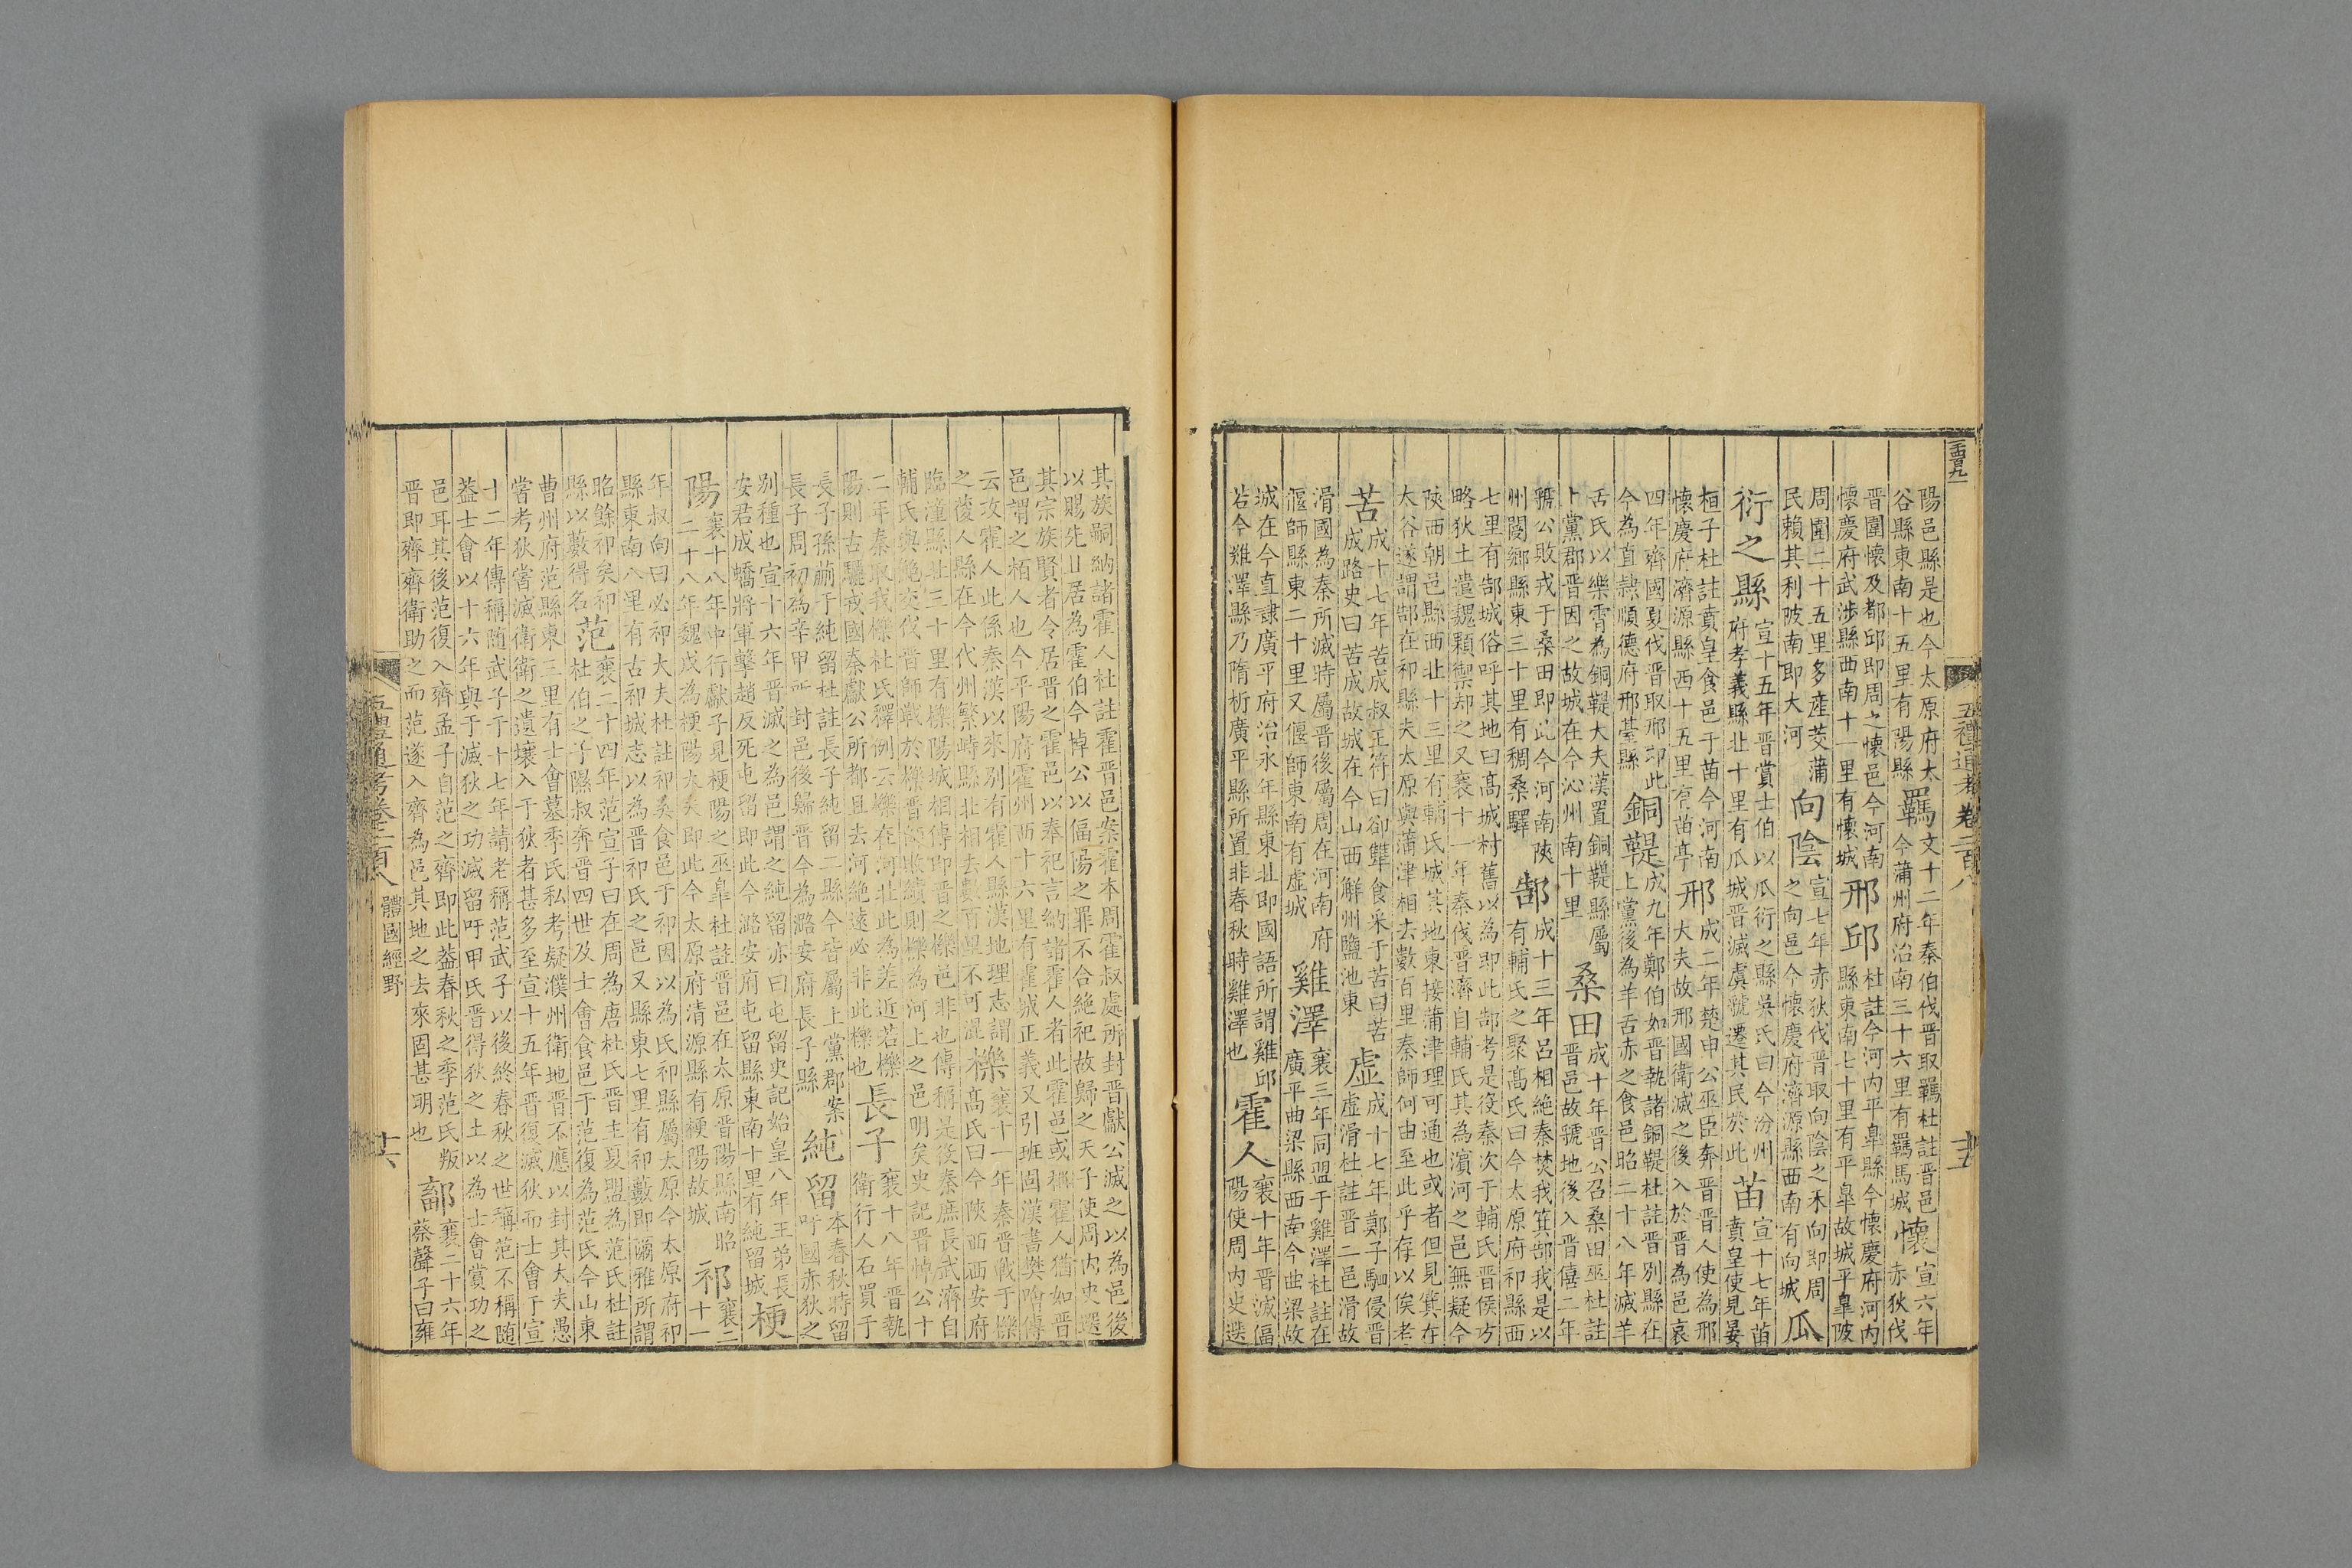 三百九
五禮通考卷二百八
十五
陽邑縣是也今太原府太
谷縣東南十五里有陽縣
羇
文十二年秦伯伐晉取羇杜註晉邑
今蒲州府治南三十六里有羇馬城
懷
宣六年
赤狄伐
晉圍懷及都邱即周之懷邑今河南
懷慶府武涉縣西南十一里有懷城
邢邱
杜註今河內平臯縣今懷慶府河內
縣東南七十里有平臯故城平臯陂
周圍二十五里多產茭蒲
民賴其利陂南即大河
向陰
宣七年赤狄伐晉取向陰之禾向即周
之向邑今懷慶府濟源縣西南有向城
瓜
衍之縣
宣十五年晉賞士伯以瓜衍之縣吳氏曰今汾州
府孝義縣北十里有瓜城晉滅虞虢遷其民於此
苗
宣十七年苗
賁皇使見晏
桓子杜註賁皇食邑于苗今河南
懷慶府濟源縣西十五里有苗亭
邢
成二年楚申公巫臣奔晉晉人使為邢
大夫故邢國衛滅之後入於晉為邑哀
四年齊國夏伐晉取邢即此
今為直隸順德府邢臺縣
銅鞮
成九年鄭伯如晉執諸銅鞮杜註晉別縣在
上黨後為羊舌赤之食邑昭二十八年滅羊
舌氏以樂霄為銅鞮大夫漢置銅鞮縣屬
上黨郡晉因之故城在今沁州南十里
桑田
成十年晉公召桑田巫杜註
晉邑故虢地後入晉僖二年
虢公敗戎于桑田即此今河南陝
州閿鄉縣東三十里有稠桑驛
郜
成十三年呂相絶秦焚我箕郜我是以
有輔氏之聚髙氏曰今太原府祁縣西
七里有郜城俗呼其地曰髙城村舊以為即此郜考是役秦次于輔氏晉侯方
略狄土遣魏顆禦却之又襄十一年秦伐晉濟自輔氏其為濵河之邑無疑今
陝西朝邑縣西北十三里有輔氏城其地東接蒲津理可通也或者但見箕在
太谷遂謂郜在祁縣夫太原與蒲津相去數百里秦師何由至此乎存以俟考
苦
成十七年苦成叔王符曰郤犫食采于苦曰苦
成路史曰苦成故城在今山西解州鹽池東
虛
成十七年鄭子駟侵晉
虛滑杜註晉二邑滑故
滑國為秦所滅時屬晉後屬周在河南府
偃師縣東二十里又偃師東南有虛城
雞澤
襄三年同盟于雞澤杜註在
廣平曲梁縣西南今曲梁故
城在今直隸廣平府治永年縣東北即國語所謂雞邱
若今雞澤縣乃隋析廣平縣所置非春秋時雞澤也
霍人
襄十年晉滅偪
陽使周內史選
其族嗣納諸霍人杜註霍晉邑案霍本周霍叔處所封晉獻公滅之以為邑後
以賜先且居為霍伯今悼公以偪陽之罪不合絶祀故歸之天子使周內史選
其宗族賢者令居晉之霍邑以奉祀言納諸霍人者此霍邑或稱霍人猶如晉
邑謂之栢人也今平陽府霍州西十六里有霍城正義又引班固漢書樊噲傳
云攻霍人此係秦漢以來別有霍人縣漢地理志謂
之葰人縣在今代州繁峙縣北相去數百里不可混
櫟
襄十一年秦晉戰于櫟
髙氏曰今陝西西安府
臨潼縣北三十里有櫟陽城相傳即晉之櫟邑非也傳稱是役秦庶長武濟自
輔氏與鮑交伐晉師戰於櫟晉師敗績則櫟為河上之邑明矣史記晉悼公十
二年秦取我櫟杜氏釋例云櫟在河北此為差近若櫟
陽則古驪戎國秦獻公所都且去河絶遠必非此櫟也
長子
襄十八年晉執
衛行人石買于
長子孫蒯于純留杜註長子純留二縣今皆屬上黨郡案
長子周初為辛甲所封邑後歸晉今為潞安府長子縣
純留
本春秋時留
吁國赤狄之
別種也宣十六年晉滅之為邑謂之純留亦曰屯留史記始皇八年王弟長
安君成蟜將軍擊趙反死屯留即此今潞安府屯留縣東南十里有純留城
梗
陽
襄十八年中行獻子見梗陽之巫臯杜註晉邑在太原晉陽縣南昭
二十八年魏戊為梗陽大夫即此今太原府清源縣有梗陽故城
祁
襄二
十一
年叔向曰必祁大夫杜註祁奚食邑于祁因以為氏祁縣屬太原今太原府祁
縣東南八里有古祁城志以為晉祁氏之邑又縣東七里有祁藪即爾雅所謂
昭餘祁矣祁
縣以藪得名
范
襄二十四年范宣子曰在周為唐杜氏晉主夏盟為范氏杜註
杜伯之子隰叔奔晉四世及士會食邑于范復為范氏今山東
曹州府范縣東三里有士會墓季氏私考疑濮州衛地晉不應以封其大夫愚
嘗考狄嘗滅衛衛之遺壤入于狄者甚多至宣十五年晉復滅狄而士會于宣
十二年傳稱隨武子于十七年請老稱范武子以後終春秋之世稱范不稱隨
益士會以十六年與于滅狄之功滅留吁甲氏晉得狄之土以為士會賞功之
邑耳其後范復入齊孟子自范之齊即此葢春秋之季范氏叛
晉即齊齊衛助之而范遂入齊為邑其地之去來固甚明也
鄐
襄二十六年
蔡聲子曰雍
五禮通考卷二百八
體國經野
十六